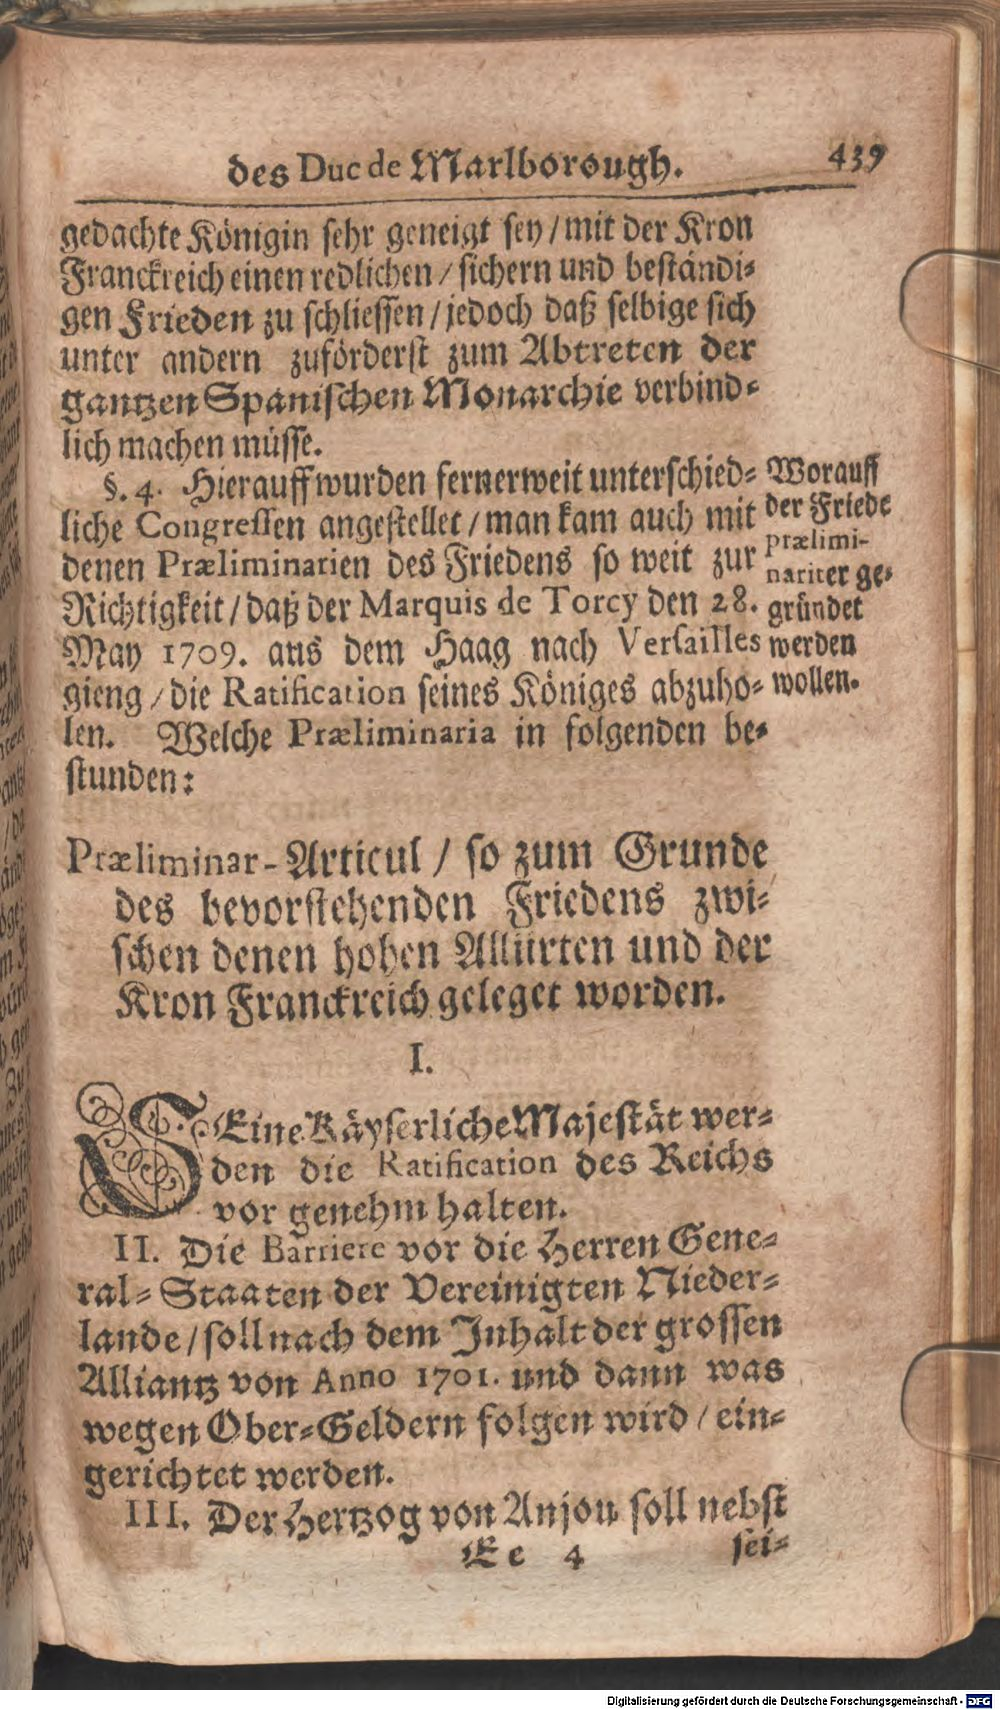 des Duc de Marlborough. 439
gedachte Königin sehr geneigt sey / mit der Kron
Franckreich einen redlichen / sichern und beständi-
gen Frieden zu schliessen / jedoch daß selbige sich
unter andern zuförderst zum Abtreten der
gantzen Spanischen Monarchie verbind-
lich machen müsse.
§. 4. Hierauff wurden fernerweit unterschied-
liche Congressen angestellet / man kam auch mit
denen Præliminarien des Friedens so weit zur
Richtigkeit / daß der Marquis de Torcy den 28.
May 1709. aus dem Haag nach Versailles
gieng / die Ratification seines Königes abzuho-
len. Welche Præliminaria in folgenden be-
stunden:
Worauff
der Friede
prælimi-
nariter ge-
gründet
werden
wollen.
Præliminar-Articul / so zum Grunde
des bevorstehenden Friedens zwi-
schen denen hohen Alliirten und der
Kron Franckreich geleget worden.
I.
SEine Käyserliche Majestät wer-
den die Ratification des Reichs
vor genehm halten.
II. Die Barriere vor die Herren Gene-
ral-Staaten der Vereinigten Nieder-
lande / soll nach dem Inhalt der grossen
Alliantz von Anno 1701. und dann was
wegen Ober-Geldern folgen wird / ein-
gerichtet werden.
III. Der Hertzog von Anjou soll nebst
Ee 4 sei-
Digitalisierung gefördert durch die Deutsche Forschungsgemeinschaft - DFG